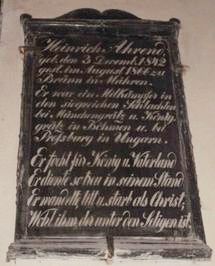 Heinrich Ahrens,
geb. den 3. Decembr. 1842
gest. im August 1866 zu
Brünn in Mähren.
Er war ein Mitkämpfer in
den siegreichen Schlachten
bei Münchengrätz u. König-
grätz in Böhmen u. bei
Preßburg in Ungarn.
Er focht für König u. Vaterland
Er diente so treu in seinem Stand
Er wandelte still u. starb als Christ;
Wohl ihm der unter den Seligen ist.